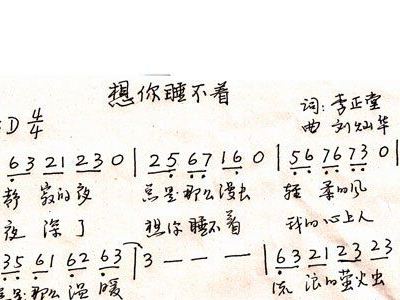 想你睡不着
词: 李正堂
D 4/4
曲 刘灿华
6 3 2 1 2 3 0 | 2 5 6 7 1 6 0 | 5 6 7 6 7 3 0 |
静 寂的夜 总是那么漫长 轻 柔的风
夜 深了 想你睡不着 我的心上人
3 5 6 1 6 2 6 3 | 3 — — — | 6 3 2 1 2 3 2 3
是那么温 暖 流 浪的萤火虫